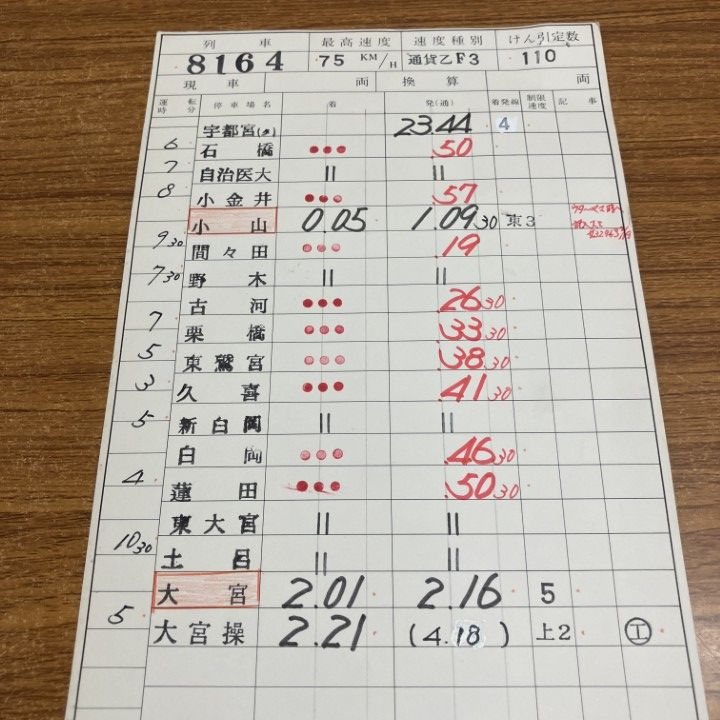 列車 最高速度 速度種別 けん引定数
8164 75 KM/H 通貨乙F3 110
現車 両 換算 両
運転時分 停車場名 着 発(通) 着発線 制限速度 記事
宇都宮(タ) 23.44 4
6
石橋 ●●● .50
7
自治医大 || ||
8
小金井 ●●● .57
小山 0.05 1.09 30 東3
9 30
間々田 ●●● .19
7 30
野木 || ||
古河 ●●● .26 30
7
栗橋 ●●● .33 30
5
東鷲宮 ●●● .38 30
3
久喜 ●●● .41 30
5
新白岡 || ||
白岡 ●●● .46 30
4
蓮田 ●●● .50 30
東大宮 || ||
10 30
土呂 || ||
大宮 2.01 2.16 5
5
大宮操 2.21 (4.18) 上2 工